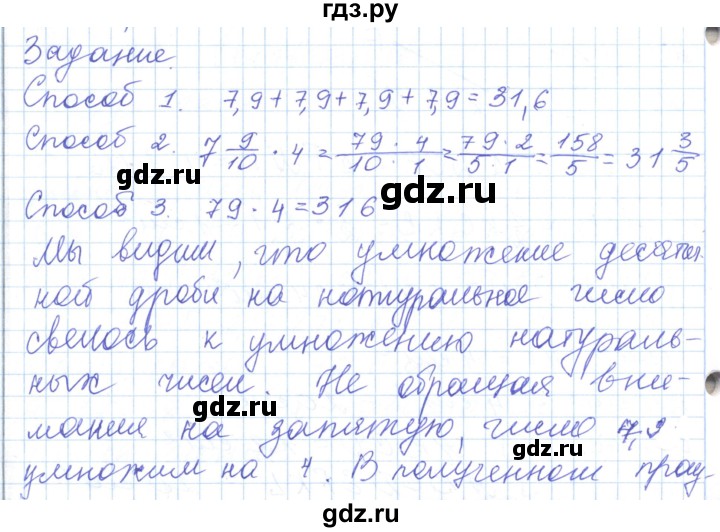 гдз.ру
Задание.
Способ 1. 7,9+7,9+7,9+7,9=31,6
Способ 2. 7 9/10 · 4 = 79 · 4/10 · 1 = 79 · 2/5 · 1 = 158/5 = 31 3/5
gdz.ru gdz.ru
Способ 3. 79 · 4 = 316
Мы видим, что умножение десятич
ной дроби на натуральное число
свелось к умножению натураль-
ных чисел. Не обращая вни-
gdz.ru
мания на запятую, число 7,9
gdz.ru
умножим на 4. В полученном прои
gdz.ru